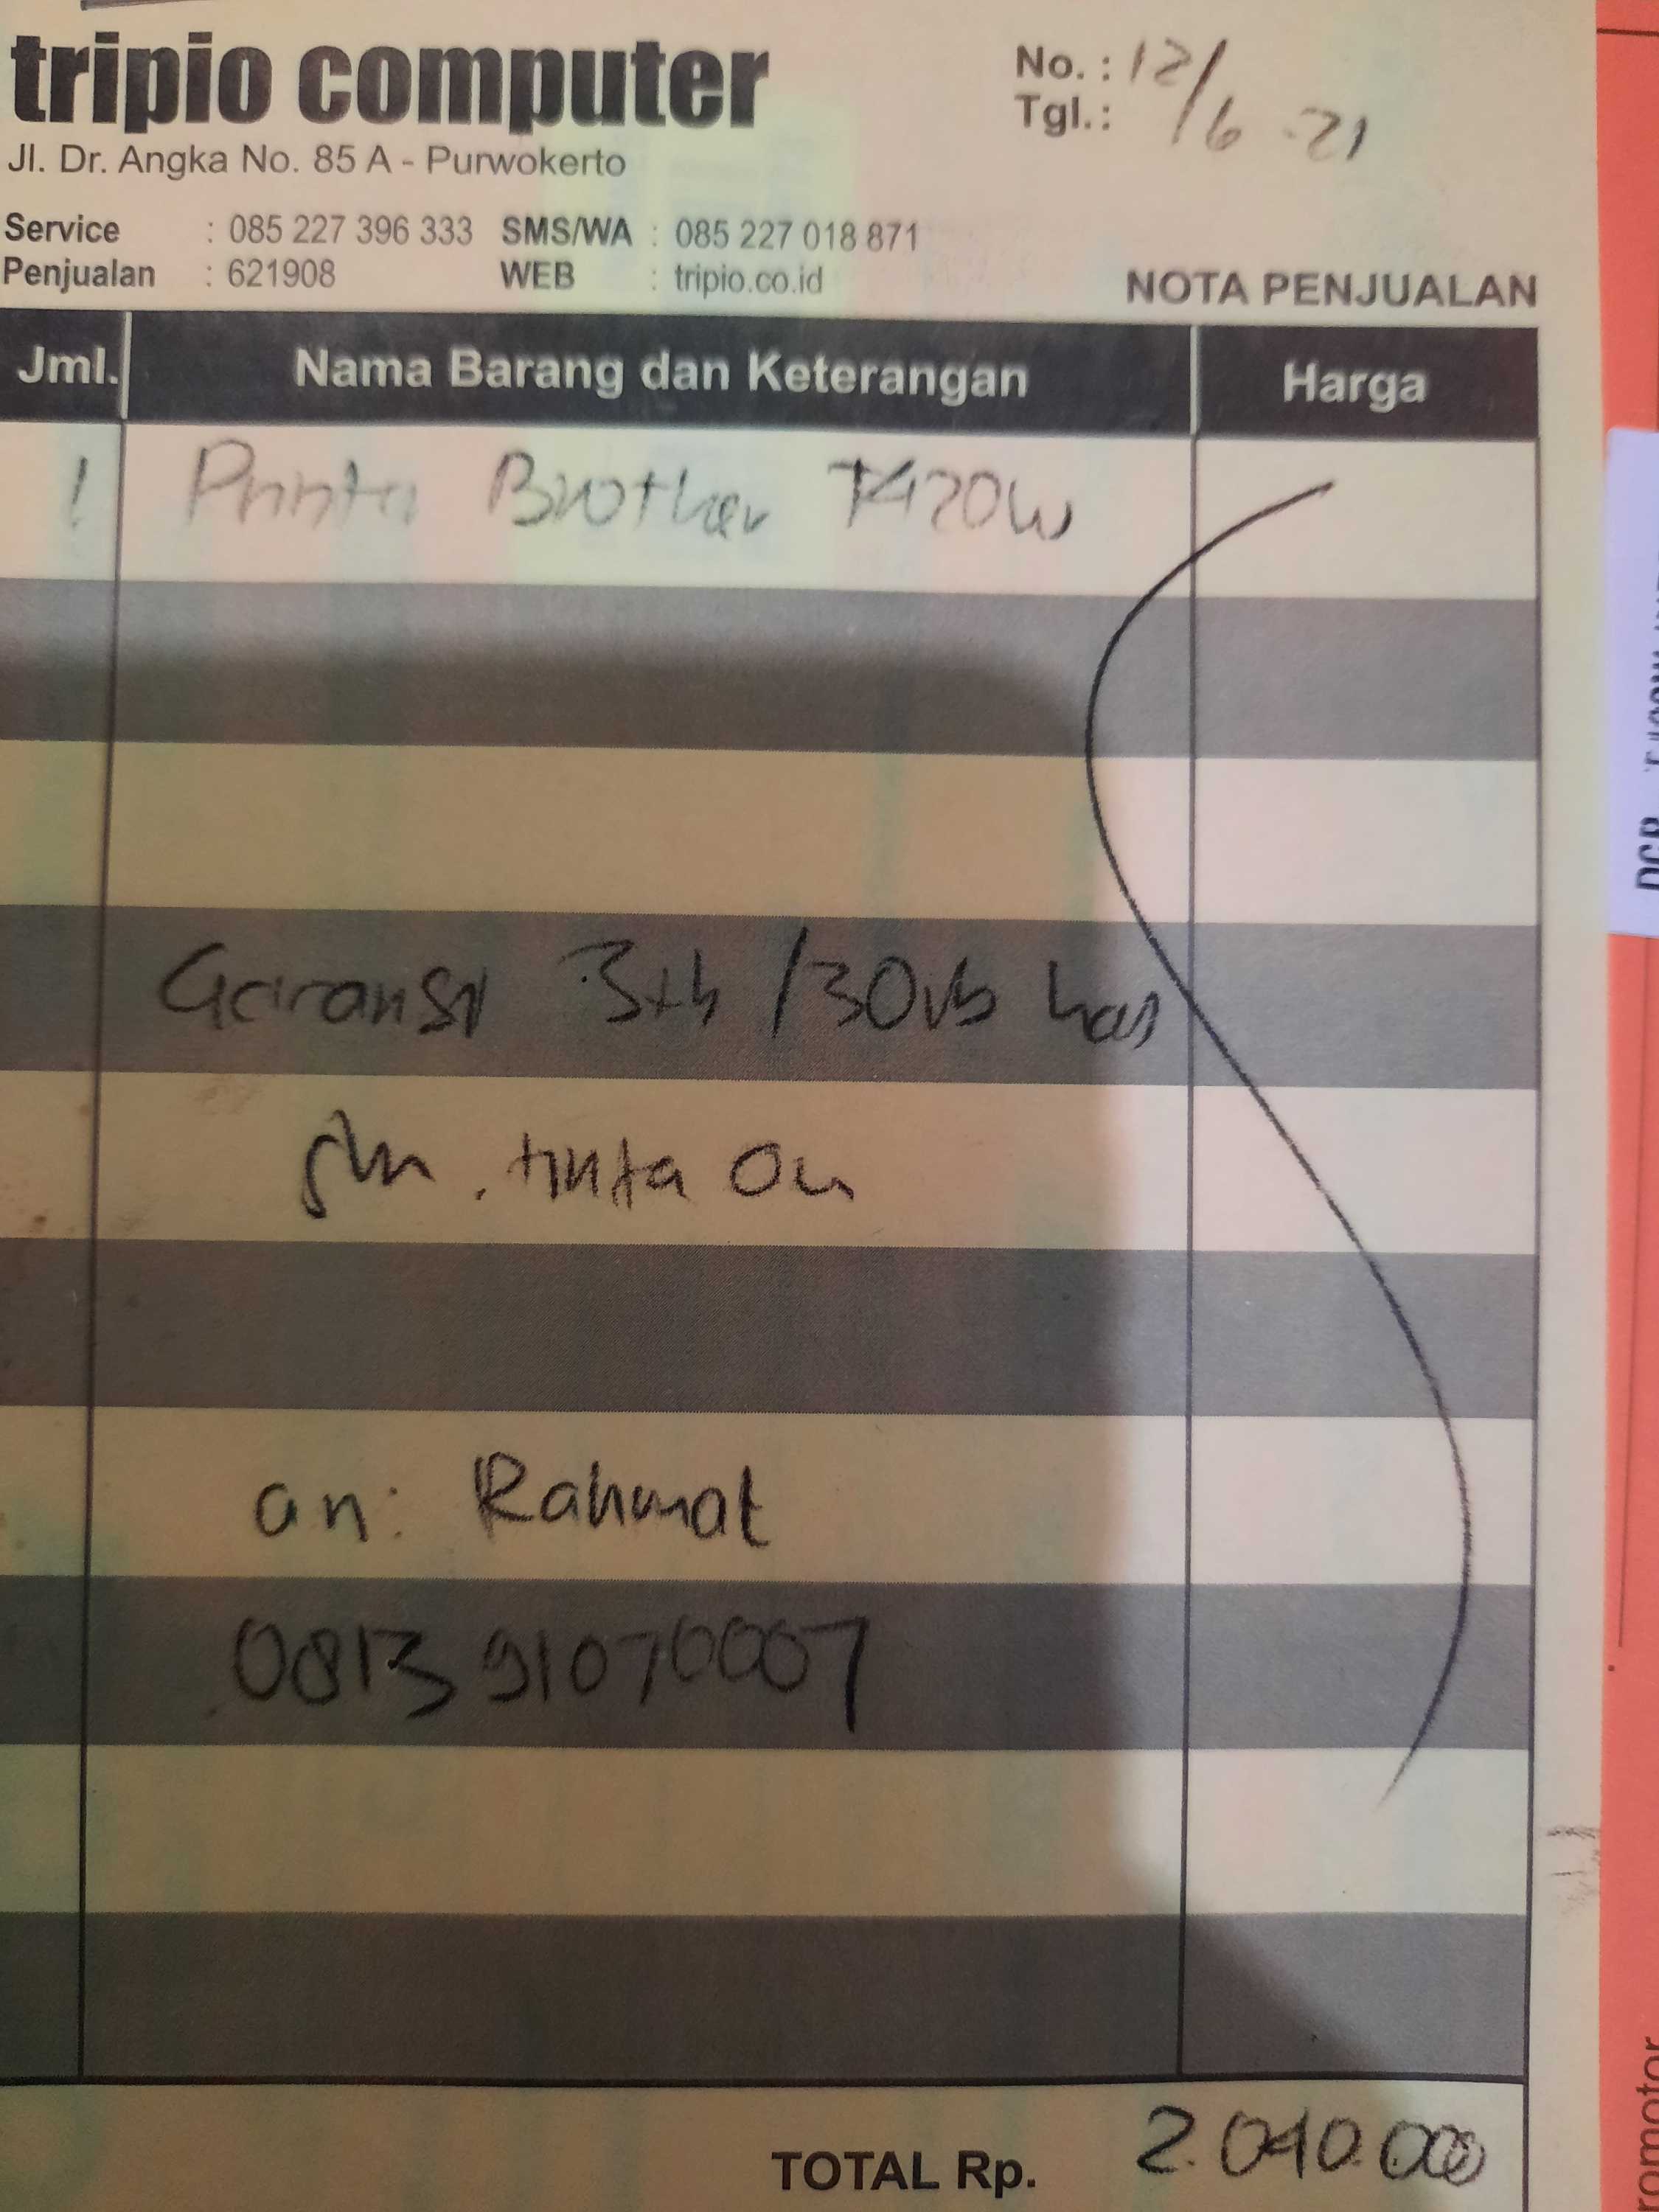 tripio computer
Jl. Dr. Angka No. 85 A - Purwokerto
No. :
Tgl.: 12/6-21
Service : 085 227 396 333 SMS/WA : 085 227 018 871
Penjualan : 621908 WEB : tripio.co.id
NOTA PENJUALAN
Jml. Nama Barang dan Keterangan Harga
1 Printer Brother T420W
Garansi 3th /30rb
tinta
an: Rahmat
081391070007
TOTAL Rp. 2.040.000
DCP
romotor